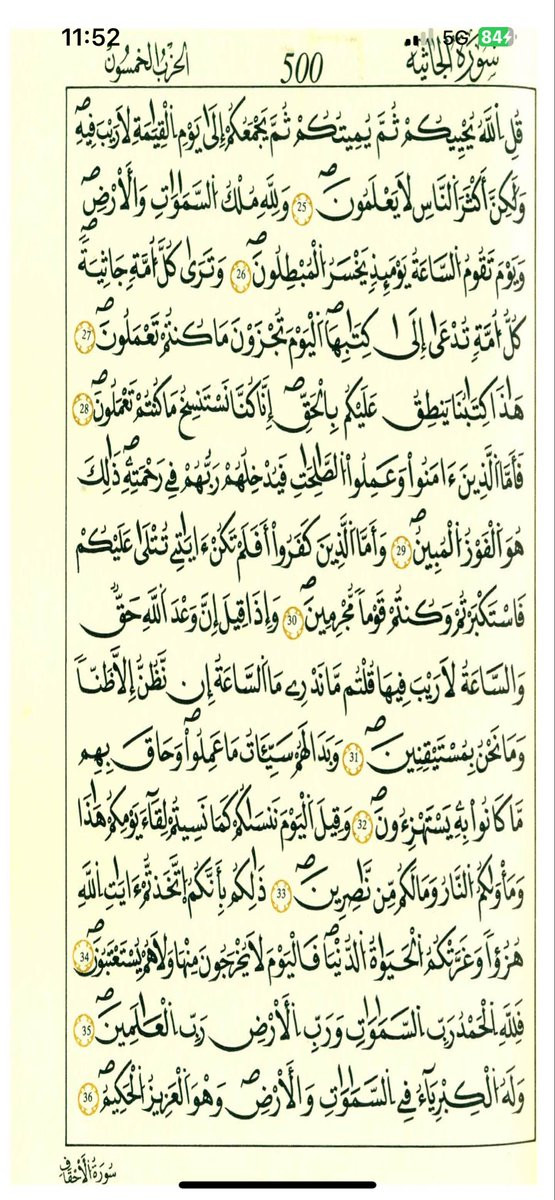 11:52 5G 84
سورة الجاثية 500 الحزب الخمسون
قُلِ اِللَّهُ يُحْيِيكُمْ ثُمَّ يُمِيتُكُمْ ثُمَّ يَجْمَعُكُمُ إِلَىٰ يَوْمِ اِلْقِيَٰمَةِ لَا رَيْبَ فِيهِ
وَلَٰكِنَّ أَكْثَرَ اَلنَّاسِ لَا يَعْلَمُونَ 25 وَلِلَّهِ مُلْكُ اُلسَّمَٰوَٰتِ وَالْأَرْضِ
وَيَوْمَ تَقُومُ اُلسَّاعَةُ يَوْمَئِذٍ يَخْسَرُ اُلْمُبْطِلُونَ 26 وَتَرَىٰ كُلَّ أُمَّةٍ جَاثِيَةً
كُلُّ أُمَّةٍ تُدْعَىٰ إِلَىٰ كِتَٰبِهَا اَلْيَوْمَ تُجْزَوْنَ مَا كُنتُمْ تَعْمَلُونَ 27
هَٰذَا كِتَٰبُنَا يَنطِقُ عَلَيْكُم بِالْحَقِّ إِنَّا كُنَّا نَسْتَنسِخُ مَا كُنتُمْ تَعْمَلُونَ 28
فَأَمَّا اَلَّذِينَ ءَامَنُواْ وَعَمِلُواْ اُلصَّٰلِحَٰتِ فَيُدْخِلُهُمْ رَبُّهُمْ فِي رَحْمَتِهِ ذَٰلِكَ
هُوَ اَلْفَوْزُ اُلْمُبِينُ 29 وَأَمَّا اَلَّذِينَ كَفَرُواْ أَفَلَمْ تَكُنْ ءَايَٰتِي تُتْلَىٰ عَلَيْكُمْ
فَاسْتَكْبَرْتُمْ وَكُنتُمْ قَوْماً مُّجْرِمِينَ 30 وَإِذَا قِيلَ إِنَّ وَعْدَ اَللَّهِ حَقٌّ
وَالسَّاعَةُ لَا رَيْبَ فِيهَا قُلْتُم مَّا نَدْرِي مَا اَلسَّاعَةُ إِن نَّظُنُّ إِلَّا ظَنّاً
وَمَا نَحْنُ بِمُسْتَيْقِنِينَ 31 وَبَدَا لَهُمْ سَيِّـَٔاتُ مَا عَمِلُواْ وَحَاقَ بِهِم
مَّا كَانُواْ بِهِ يَسْتَهْزِءُونَ 32 وَقِيلَ اَلْيَوْمَ نَنسَىٰكُمْ كَمَا نَسِيتُمْ لِقَآءَ يَوْمِكُمْ هَٰذَا
وَمَأْوَىٰكُمُ اُلنَّارُ وَمَا لَكُم مِّن نَّٰصِرِينَ 33 ذَٰلِكُم بِأَنَّكُمُ اُتَّخَذتُّمُ ءَايَٰتِ اِللَّهِ
هُزُؤاً وَغَرَّتْكُمُ اُلْحَيَوٰةُ اُلدُّنْيَا فَالْيَوْمَ لَا يُخْرَجُونَ مِنْهَا وَلَا هُمْ يُسْتَعْتَبُونَ 34
فَلِلَّهِ اِلْحَمْدُ رَبِّ اِلسَّمَٰوَٰتِ وَرَبِّ اِلْأَرْضِ رَبِّ اِلْعَٰلَمِينَ 35
وَلَهُ اُلْكِبْرِيَآءُ فِي اِلسَّمَٰوَٰتِ وَالْأَرْضِ وَهُوَ اَلْعَزِيزُ اُلْحَكِيمُ 36
سورة الأحقاف